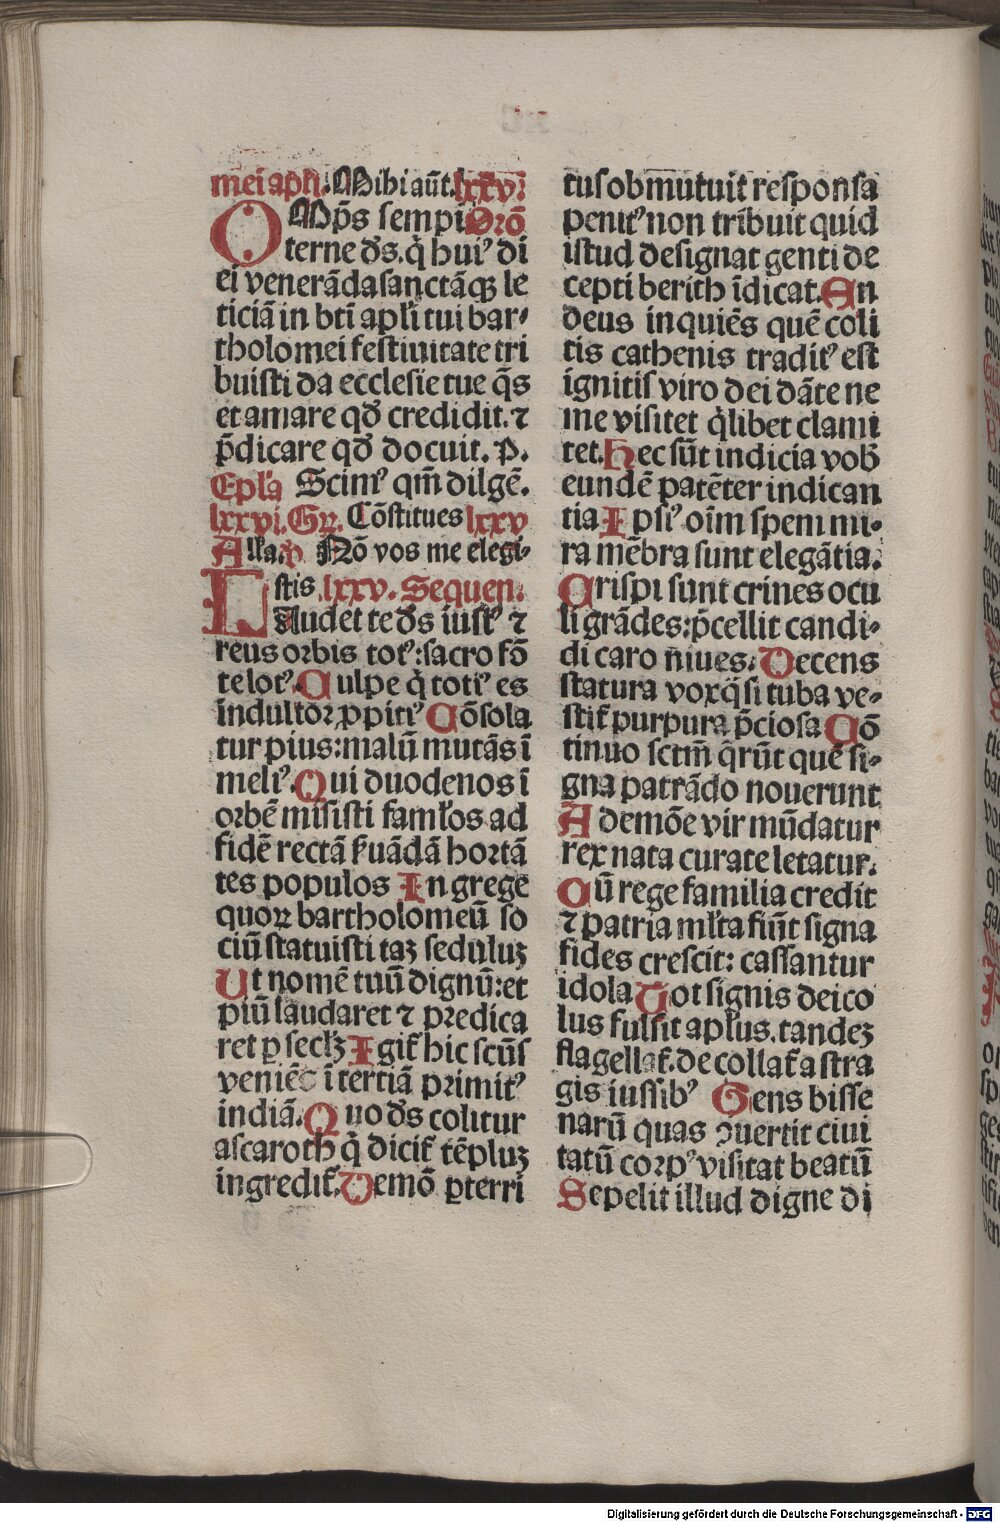 mei apl̄i. Mihi aūt. lxxvi
OMp̄s sempi Orō
terne d̄s. q̄ huiꝰ di
ei venerādā sanctāqꝫ le
ticiā in bt̄i apl̄i tui bar⸗
tholomei festiuitate tri
buisti da ecclesie tue q̄s
et amare qđ credidit. ⁊
p̄dicare qđ docuit. P.
Epl̄a Scimꝰ qm̄ dilgē.
lxxvi. Gr̄. Cōstitues lxxv
All'a. v̄ Nō vos me elegi⸗
stis lxxv. Sequen.
LAudet te d̄s iustꝰ ⁊
reus orbis totꝰ: sacro fō
te lotꝰ. Culpe q̄ totiꝰ es
indultor ꝓpitiꝰ Cōsola
tur pius: malū mutās ī
meliꝰ. Qui duodenos ī
orbē misisti famłos ad
fidē rectā ẜuādā hortā
tes populos In grege
quoꝝ bartholomeū so
ciū statuisti taꝫ seduluꝫ
Ut nomē tuū dignū: et
piū laudaret ⁊ predica
ret ꝑ secl̄ꝫ Igit̄ hic scūs
veniēs ī tertiā primitꝰ
indiā. Quo d̄s colitur
ascaroth q̄ dicit̄ tēpluꝫ
ingredit̄. Demō ꝑterri
tus obmutuit responsa
penitꝰ non tribuit quid
istud designat genti de
cepti berith īdicat. En
deus inquiēs quē coli
tis cathenis traditꝰ est
ignitis viro dei dāte ne
me visitet q̄libet clami
tet. Hec sūt indicia vob̄
eundē patēter indican
tia Ipsiꝰ oīm spem mi⸗
ra mēbra sunt elegātia.
Crispi sunt crines ocu
li grādes: p̄cellit candi⸗
di caro niues. Decens
statura vox q̄si tuba ve⸗
stit̄ purpura p̄ciosa Cō
tinuo sctm̄ q̄rūt quē si⸗
gna patrādo nouerunt
A demōe vir mūdatur
rex nata curate letatur.
Cū rege familia credit
⁊ patria młta fiūt signa
fides crescit: cassantur
idola Tot signis deico
lus fulsit apl̄us. tandeꝫ
flagellat̄. decollat̄ a stra
gis iussibꝰ Gens bisse
narū quas ꝯuertit ciui
tatū corpꝰ visitat beatū
Sepelit illud digne di
Digitalisierung gefördert durch die Deutsche Forschungsgemeinschaft - DFG